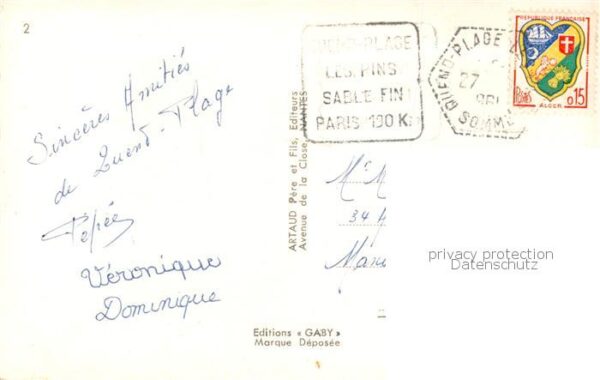 2
Sincères Amitiés
de Quend-Plage
Pépée
Véronique
Dominique
ARTAUD Père et Fils, Editeurs
Avenue de la Close, NANTES
QUEND-PLAGE
LES PINS
SABLE FIN
PARIS 190 K
QUEND-PLAGE
27
SOMME
REPUBLIQUE FRANÇAISE
Postes
0,15
ALGER
34
privacy protection
Datenschutz
Editions « GABY »
Marque Déposée